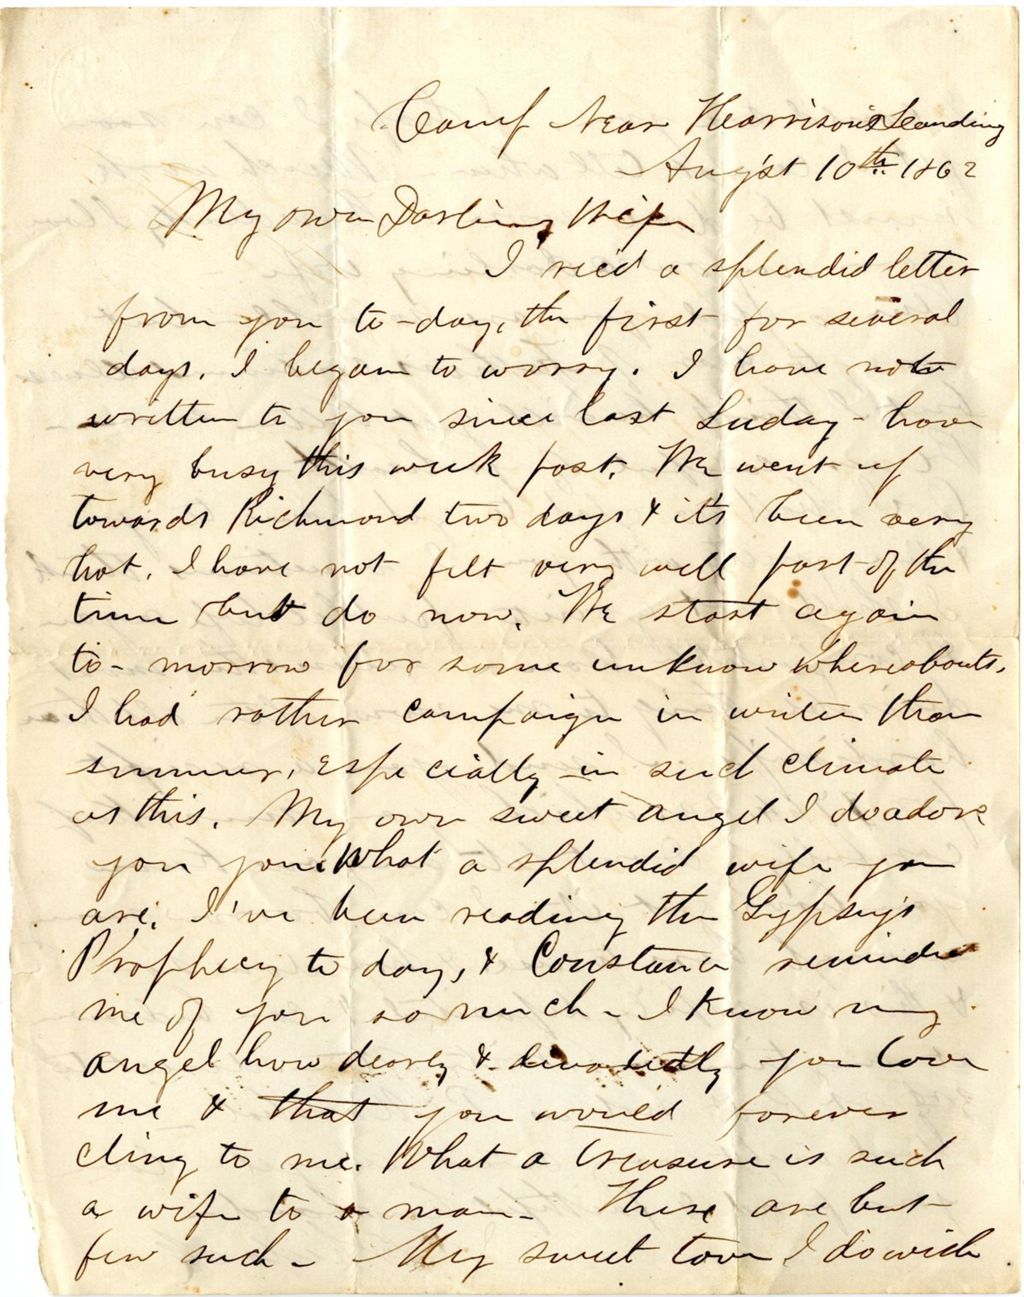 Camp Near Harrison's Landing
Aug'st 10th 1862
My own Darling Wife
I rec'd a splendid letter
from you to-day, the first for several
days. I began to worry. I have not
written to you since last Suday - have
very busy this week past. We went up
towards Richmond two days & it's been very
hot. I have not felt very well part of the
time but do now. We start again
to-morrow for some unknow whereabouts.
I had rather campaign in winter than
summer, especially in such climate
as this. My own sweet angel I do adore
you you. What a splendid wife you
are. I've been reading the Gypsey's
Prophecy to day, & Constance reminds
me of you so much - I know my
angel how dearly & devotedly you love
me & that you would forever
cling to me. What a treasure is such
a wife to a man - There are but
few such - My sweet love I do wish